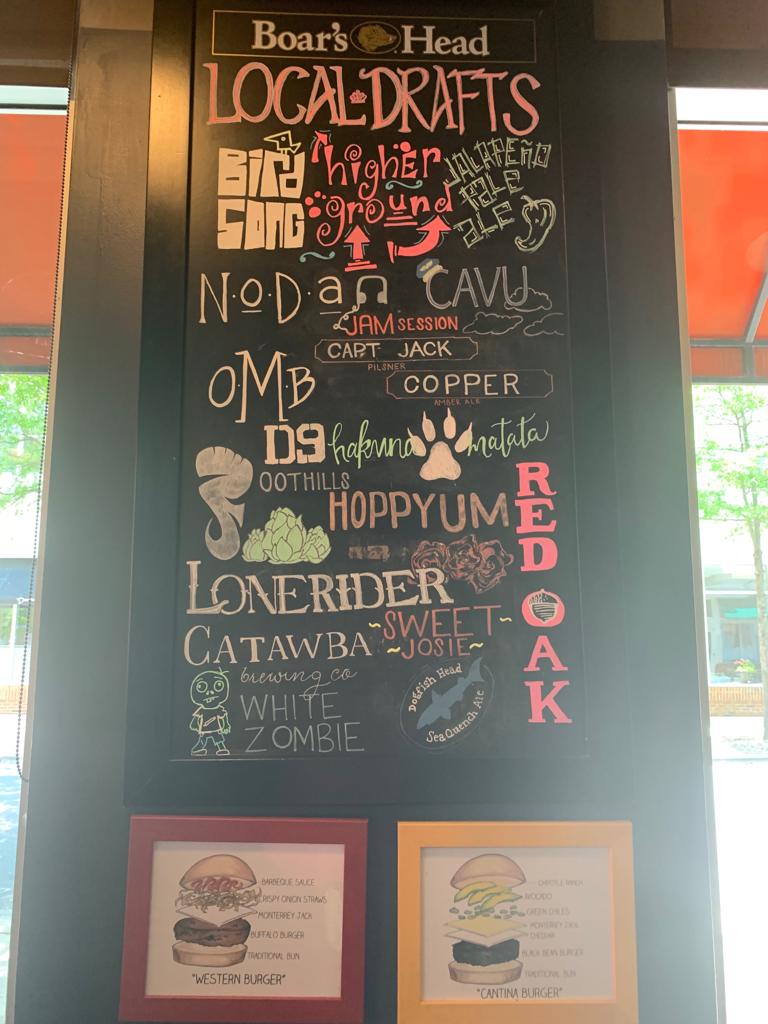 Boar's Head
LOCAL DRAFTS
BiRd SONG
higher ground
JALAPEÑO PALE ALE
N·o·D·a
CAVU
JAM SESSION
CAPT JACK
PILSNER
O·M·B
COPPER
AMBER ALE
D9 hakuna matata
OOTHILLS
HOPPYUM
RED OAK
LONERIDER
SWEET JOSIE
CATAWBA
brewing co
WHITE ZOMBIE
Dogfish Head
SeaQuench Ale
BARBEQUE SAUCE
CRISPY ONION STRAWS
MONTERREY JACK
BUFFALO BURGER
TRADITIONAL BUN
"WESTERN BURGER"
CHIPOTLE RANCH
AVOCADO
GREEN CHILES
MONTEREY JACK
CHEDDAR
BLACK BEAN BURGER
TRADITIONAL BUN
"CANTINA BURGER"